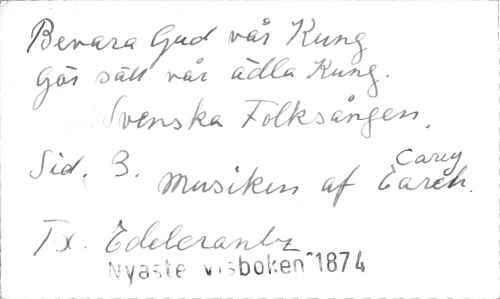 Bevara Gud vår Kung
Gör säll vår ädla Kung.
Svenska Folksången.
Sid. 3. Musiken af Carey
Tx. Edelcrantz
Nyaste visboken 1874